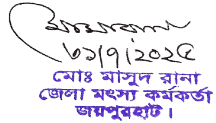 ৩১/৭/২০২৫
মোঃ মাসুদ রানা
জেলা মৎস্য কর্মকর্তা
জয়পুরহাট।